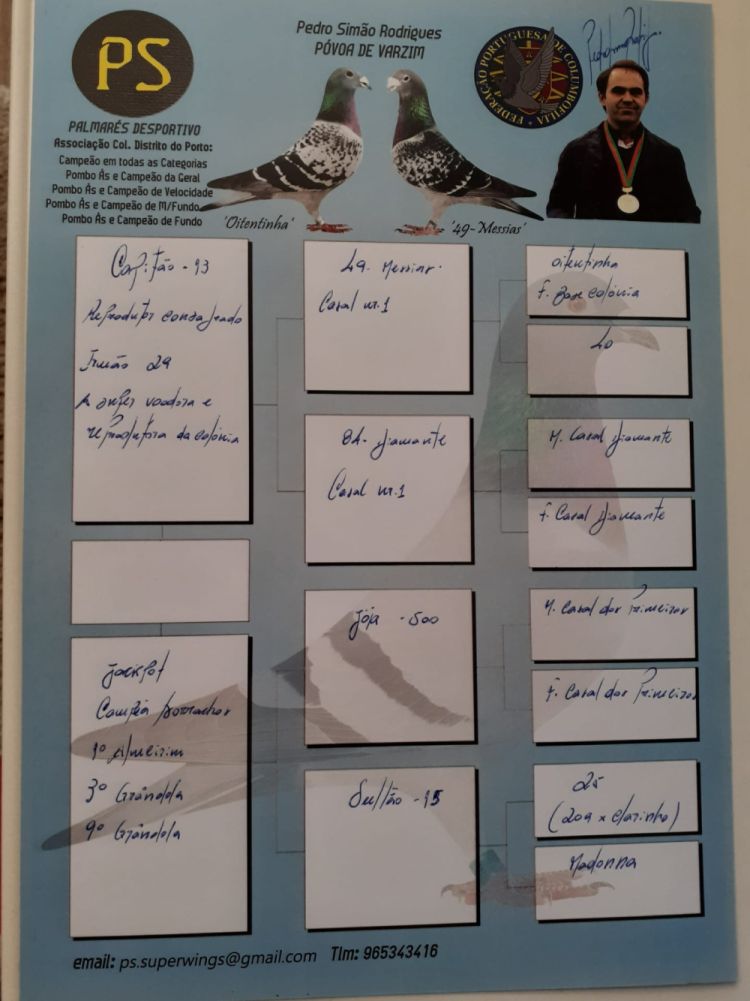 PS
PALMARÉS DESPORTIVO
Associação Col. Distrito do Porto:
Campeão em todas as Categorias
Pombo Ás e Campeão da Geral
Pombo Ás e Campeão de Velocidade
Pombo Ás e Campeão de M/Fundo
Pombo Ás e Campeão de Fundo
Pedro Simão Rodrigues
PÓVOA DE VARZIM
'Oitentinha'
'49-Messias'
FEDERAÇÃO PORTUGUESA DE COLUMBOFILIA
Capitão - 93
Reprodutor consagrado
Irmão 29
A super voadora e
reprodutora da colónia
Jackpot
Campeã borrachos
1º Almeirim
3º Grândola
9º Grândola
49. Messias.
Casal nr.1
84. Diamante
Casal nr.1
Jóia - 500
Sultão - 15
Oitentinha
F. Base colónia
40
M. Casal Diamante
F. Casal Diamante
M. Casal dos Primeiros
F. Casal dos Primeiros
25
(209 x Clarinha)
Madonna
email: ps.superwings@gmail.com Tlm: 965343416